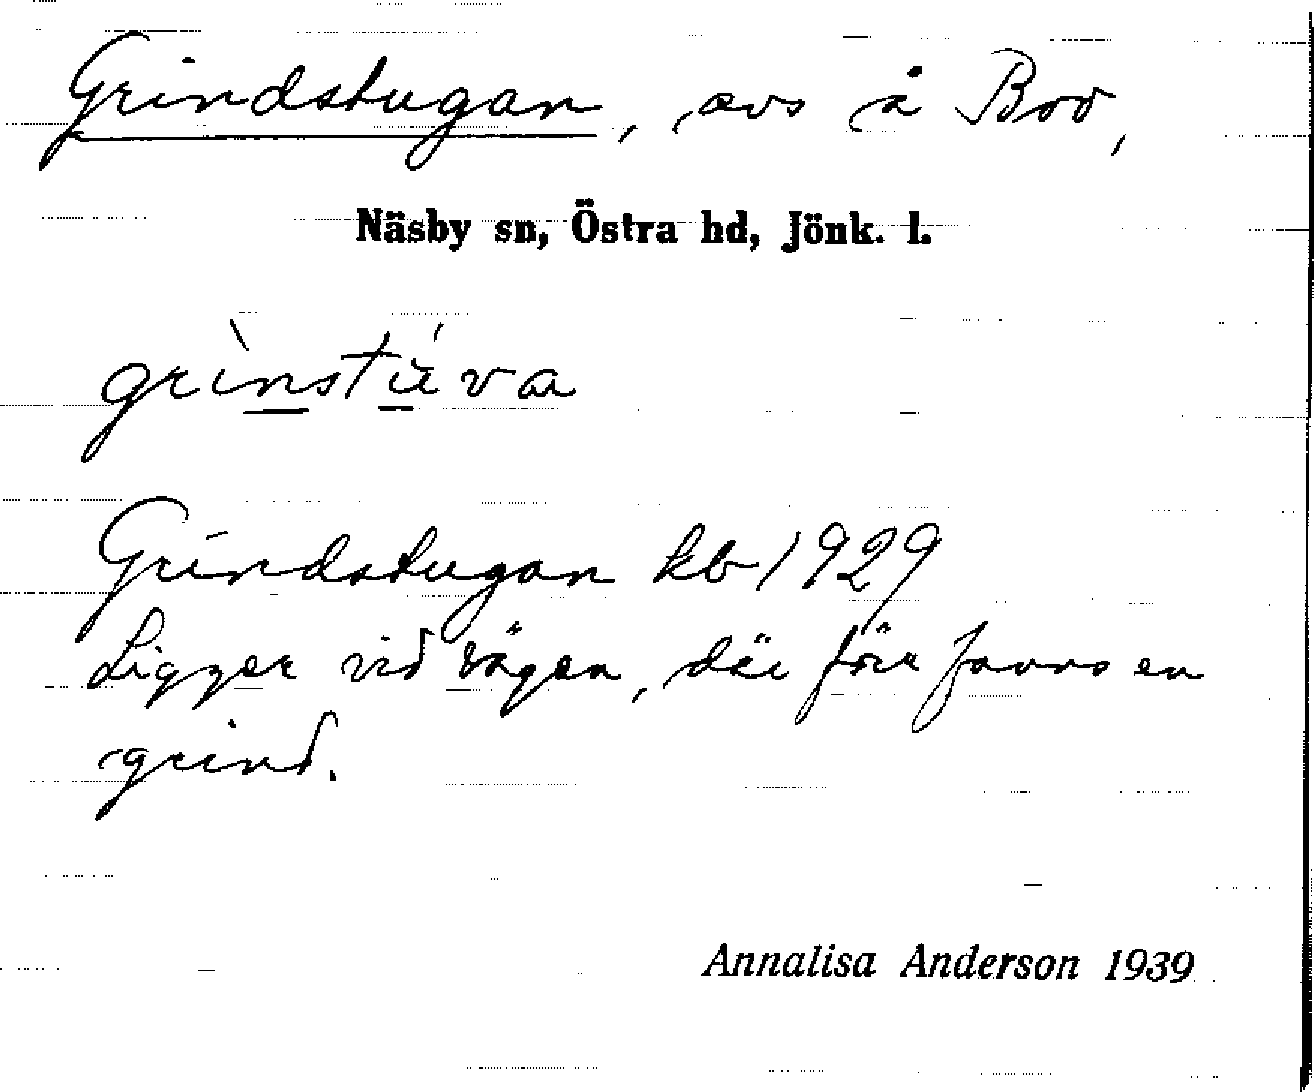 Grindstugan, avs å Boo,
Näsby sn, Östra hd, Jönk. l.
grìnstúva
Grindstugan kb 1929
Ligger vid vägen, där förr fanns en
grind.
Annalisa Anderson 1939